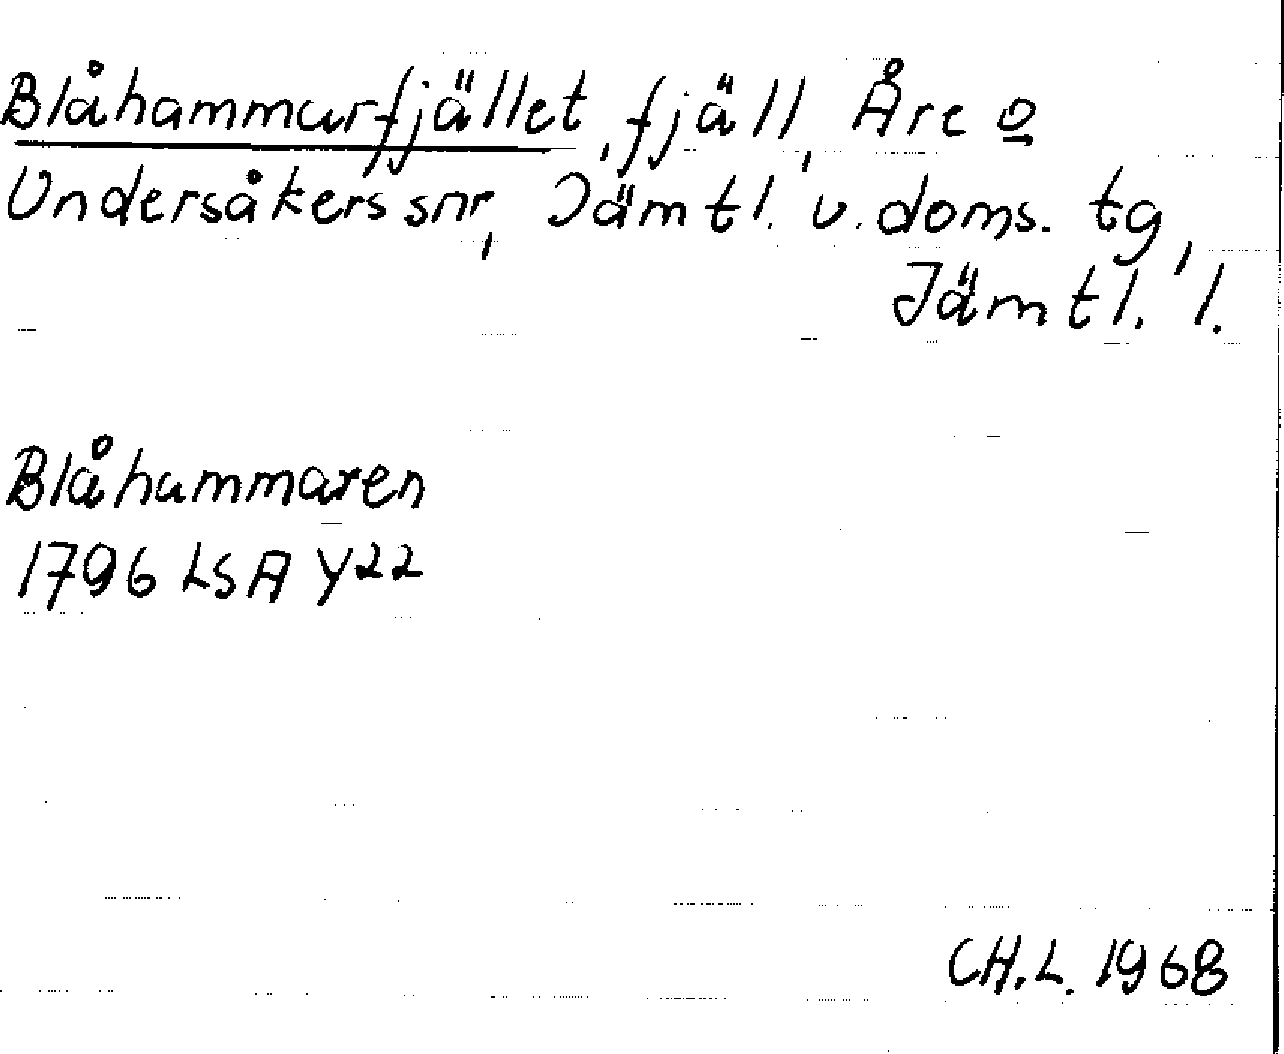 Blåhammarfjället, fjäll, Åre o
Undersåkers snr, Jämtl. v. doms. tg,
Jämtl. l.
Blåhammaren
1796 LSA Y22
CH.L. 1968